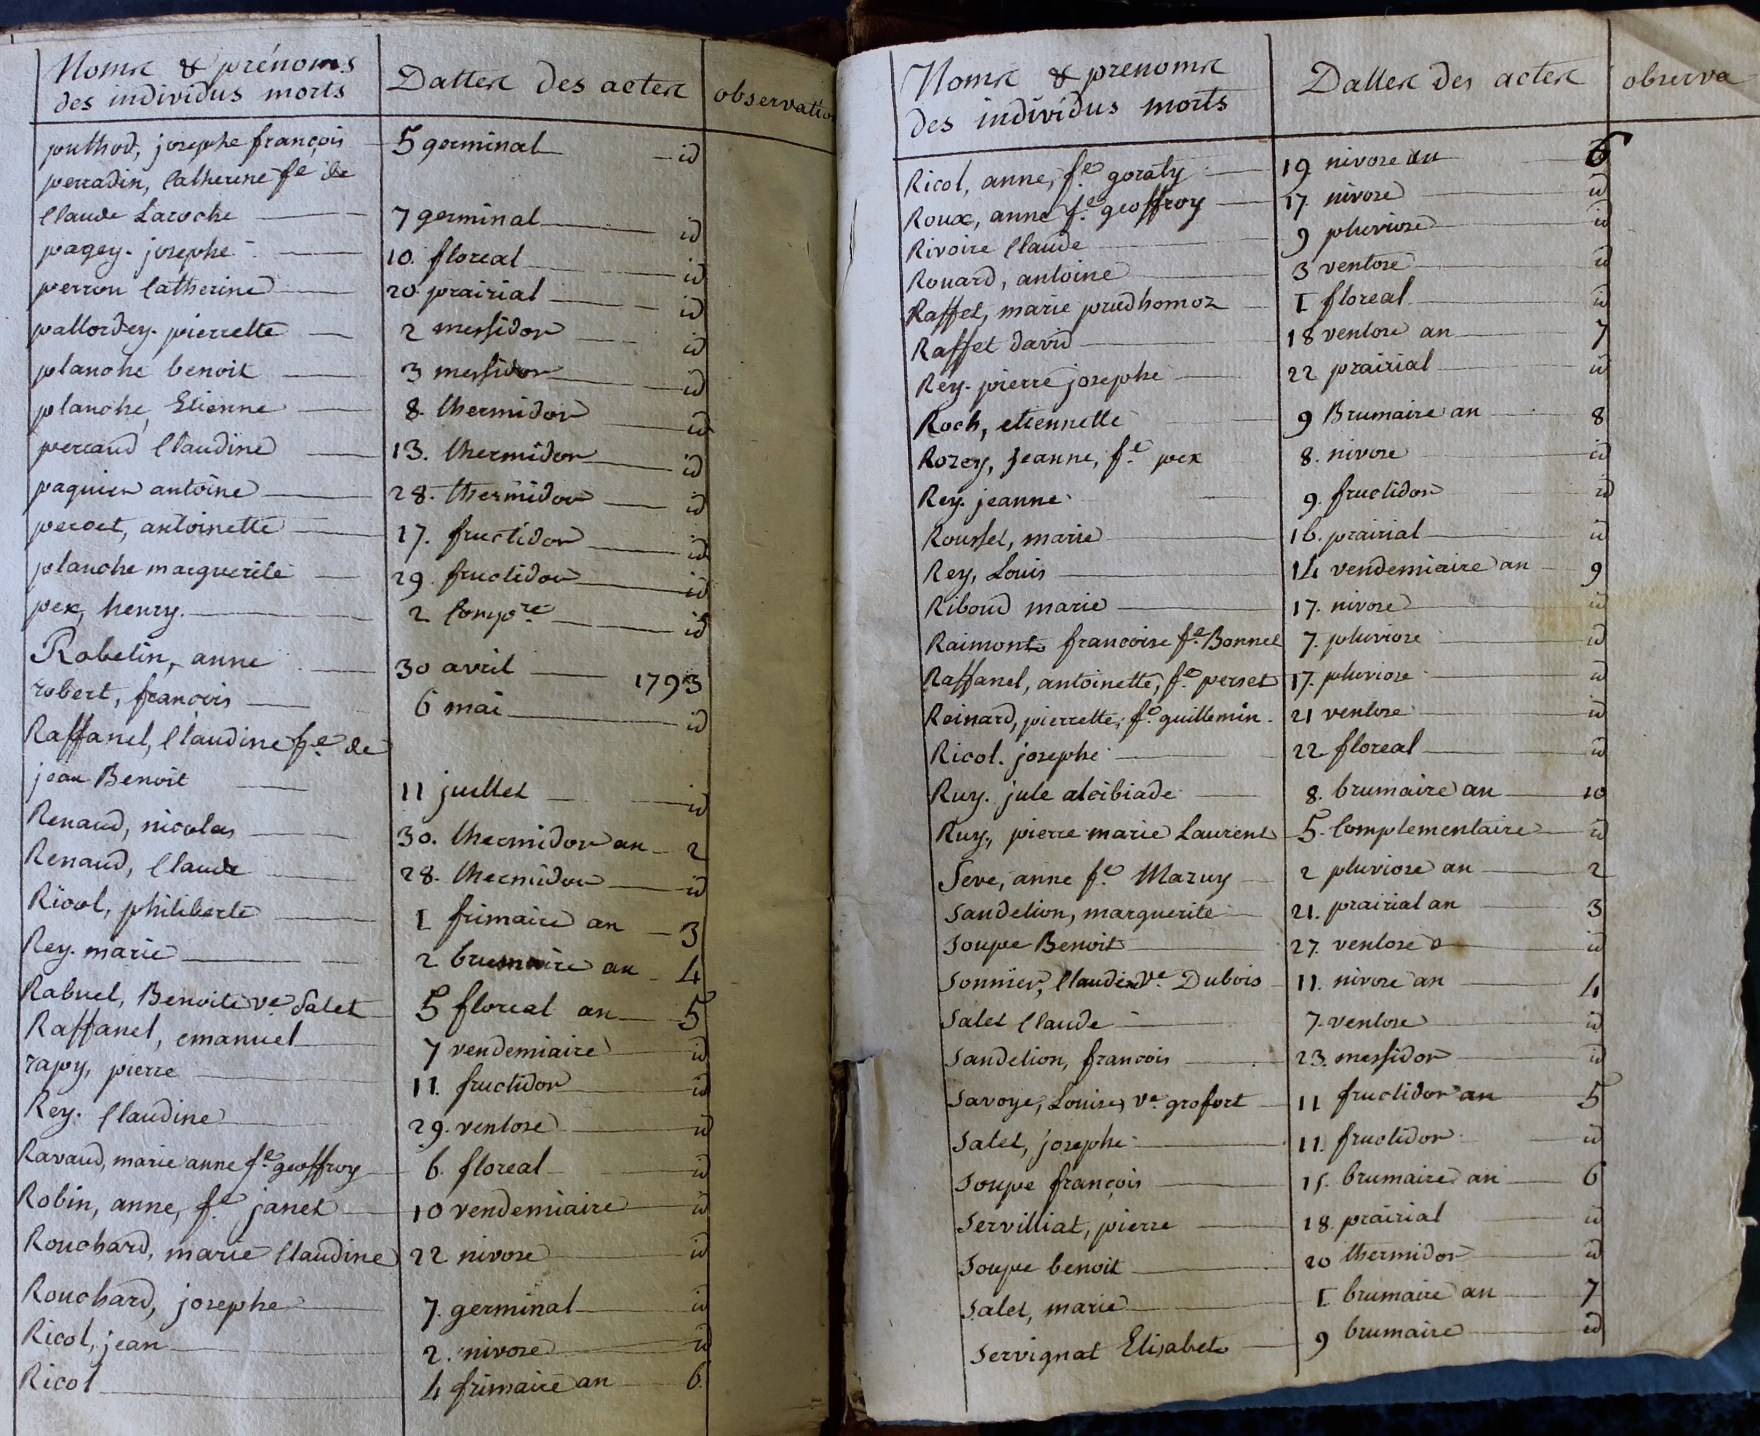 Noms & prénoms
des individus morts
Dattes des actes
observation
puthod, josephe françois 5 germinal id
perradin, Catherine fe de
Claude Laroche 7 germinal id
pagey. josephe 10. floreal id
perron Catherine 20 prairial id
pallordey. pierrette 2 messidor id
planche benoit 3 messidor id
planche, Etienne 8. thermidor id
perraud Claudine 13. thermidor id
paquier antoine 28. thermidor id
perret, antoinette 17. fructidor id
planche marguerite 29. fructidor id
pex, henry. 2 Compre id
Robelin, anne 30 avril 1793
robert, françois 6 mai id
Raffanel, Claudine fe de
jean Benoit 11 juillet id
Renaud, nicolas 30. thermidor an 2
Renaud, Claude 28. thermidor id
Ricol, philiberte 1 frimaire an 3
Rey. marie 2 brumaire an 4
Rabuel, Benoite ve Salet 5 floreal an 5
Raffanel, emanuel 7 vendemiaire id
rapy, pierre 11. fructidor id
Rey. Claudine 29. ventose id
Ravaud, marie anne fe geoffroy 6. floreal id
Robin, anne, fe janet 10 vendemiaire id
Rouchard, marie Claudine 22 nivose id
Rouchard, josephe 7. germinal id
Ricol, jean 2. nivose id
Ricol 4 frimaire an 6.
Noms & prenoms
des individus morts
Dattes des actes
observa
Ricol, anne, fe goraty 19 nivose an 6
Roux, anne fe geoffroy 17. nivose id
Rivoire Claude 9 pluviose id
Rouard, antoine 3 ventose id
Raffet, marie prudhomoz 1 floreal id
Raffet david 18 ventose an 7
Rey. pierre josephe 22 prairial id
Roch, etiennette 9 Brumaire an 8
Rozey, Jeanne, fe pex 8. nivose id
Rey. jeanne 9. fructidor id
Roussel, marie 16. prairial id
Rey, Louis 14 vendemiaire an 9
Riboud marie 17. nivose id
Raimont francoise fe Bonnel 7. pluviose id
Raffanel, antoinette, fe perset 17. pluviose id
Reinard, pierrette, fe guillemin 21 ventose id
Ricol. josephe 22 floreal id
Ruy. jule alcibiade 8. brumaire an 10
Ruy, pierre marie Laurent 5. Complementaire id
Seve, anne fe Mazuy 2 pluviose an 2
Sandelion, marguerite 21. prairial an 3
Soupe Benoit 27. ventose id
Sonnier, Claudine ve Dubois 11. nivose an 4
Salet Claude 7. ventose id
Sandelion, francois 23. messidor id
Savoye, Louise, ve grofort 11 fructidor an 5
Salet, josephe 11. fructidor id
Soupe françois 15. brumaire an 6
Servilliat, pierre 18. prairial id
Soupe benoit 20 thermidor id
Salet, marie 1 brumaire an 7
Servignat Elisabet 9 brumaire id